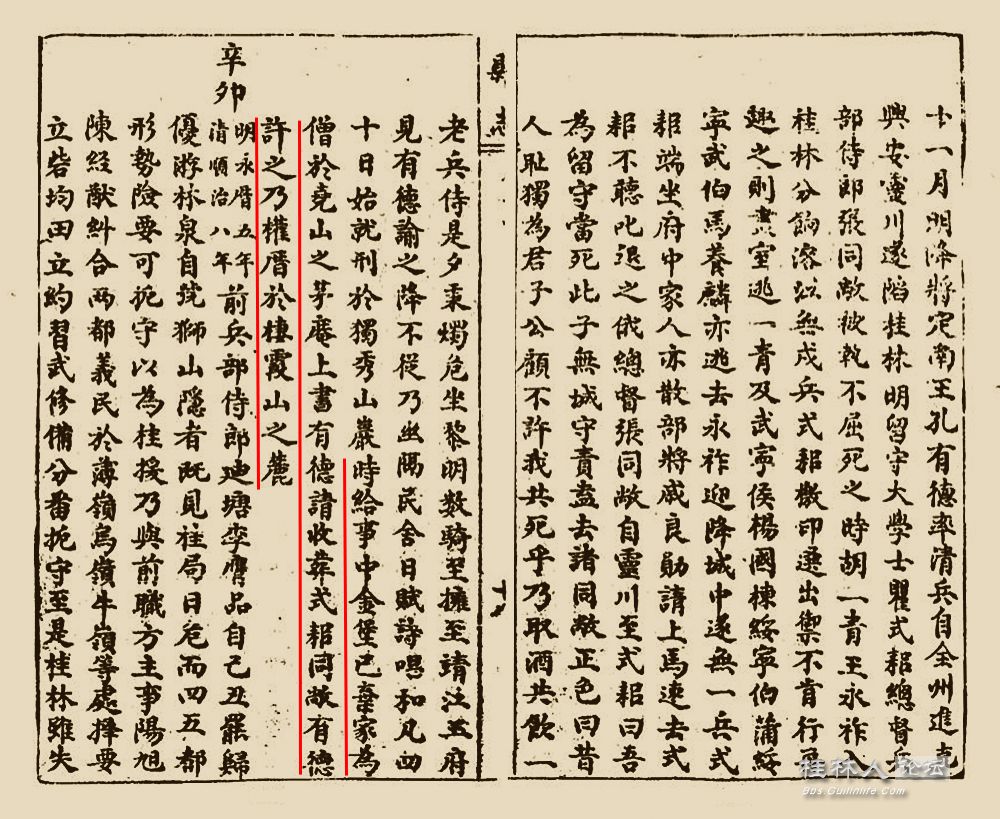 十一月明降將定南王孔有德率清兵自全州進克
興安靈川遂陷桂林明留守大學士瞿式耜總督兵
部侍郎張同敞被執不屈死之時胡一青王永祚入
桂林分餉溶江無戍兵式耜檄印選出禦不肯行再
趣之則盡室逃一青及武寧侯楊國棟綏寧伯蒲纓
寧武伯馬養麟亦逃去永祚迎降城中遂無一兵式
耜端坐府中家人亦散部將戚良勛請上馬速去式
耜不聽叱退之俄總督張同敞自靈川至式耜曰吾
為留守當死此子無城守責盍去諸同敞正色曰昔
人恥獨為君子公顧不許我共死乎乃取酒共飲一
縣志
十九
老兵侍是夕秉燭危坐黎明數騎至擁至靖江王府
見有德諭之降不從乃幽隔民舍日賦詩唱和凡四
十日始就刑於獨秀山巖時給事中金堡已棄家為
僧於堯山之茅庵上書有德請收葬式耜同敞有德
許之乃權厝於棲霞山之麓
辛卯
明永曆五年
清順治八年
前兵部侍郎廸塘李膺品自己丑罷歸
優游林泉自號獅山隱者既見桂局日危而四五都
形勢險要可扼守以為桂援乃與前職方主事陽旭
陳經猷糾合兩都義民於薄嶺烏嶺牛嶺等處擇要
立砦均田立約習武修備分番扼守至是桂林雖失
桂林人论坛
Bbs.Guilinlife.Com